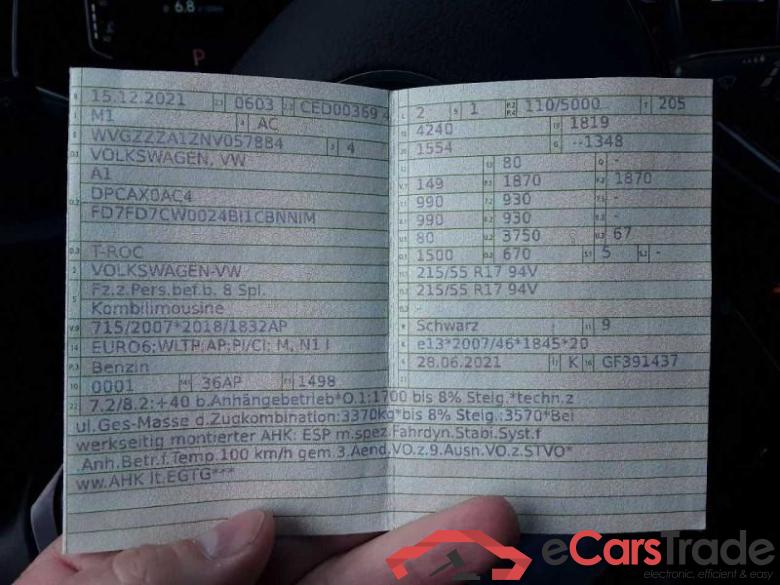 6.8
P
B 15.12.2021 2.1 0603 2.2 CED00369 4
J M1 4 AC
E WVGZZZA1ZNV057884 3 4
D.1 VOLKSWAGEN, VW
A1
D.2 DPCAX0AC4
FD7FD7CW0024BI1CBNNIM
D.3 T-ROC
2 VOLKSWAGEN-VW
5 Fz.z.Pers.bef.b. 8 Spl.
Kombilimousine
V.9 715/2007*2018/1832AP
14 EURO6;WLTP;AP;PI/CI; M, N1 I
P.3 Benzin
10 0001 14.1 36AP P.1 1498
L 2 9 1 P.2 P.4 110/5000 T 205
18 4240 19 1819
20 1554 G --1348
12 - 13 80 Q -
V.7 149 F.1 1870 F.2 1870
7.1 990 7.2 930 7.3 -
8.1 990 8.2 930 8.3 -
U.1 80 U.2 3750 U.3 67
O.1 1500 O.2 670 S.1 5 S.2 -
15.1 215/55 R17 94V
15.2 215/55 R17 94V
R Schwarz 11 9
K e13*2007/46*1845*20
6 28.06.2021 17 K 16 GF391437
21
22 7.2/8.2:+40 b.Anhängebetrieb*O.1:1700 bis 8% Steig.*techn.z
ul.Ges-Masse d.Zugkombination:3370kg*bis 8% Steig.:3570*Bei
werkseitig montierter AHK: ESP m.spez.Fahrdyn.Stabi.Syst.f
.Anh.Betr.f.Temp.100 km/h gem.3.Aend.VO.z.9.Ausn.VO.z.STVO*
ww.AHK lt.EGTG***
eCarsTrade
electronic, efficient & easy